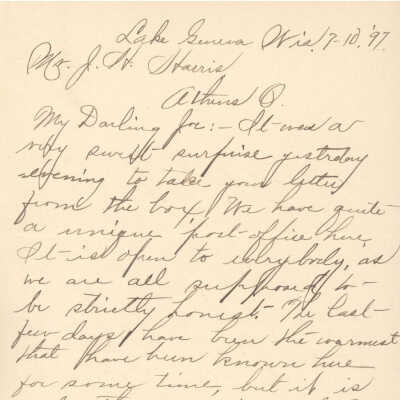 Lake Geneva Wis. 7-10, '97.
Mr. J. H. Harris
Athens O.
My Darling Joe:- It was a
very sweet surprise yesterday
evening to take your letter
from the box. We have quite
a unique post-office here.
It is open to everybody, as
we are all supposed to
be strictly honest. The last
few days have been the warmest
that have been known here
for some time, but it is